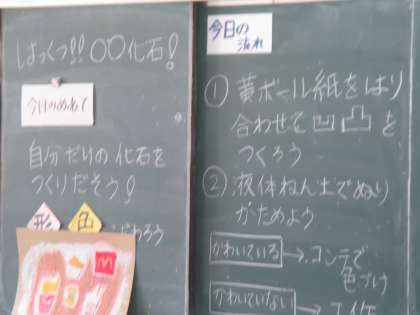 はっくつ!!〇〇化石!
今日のめあて
自分だけの化石を
つくりだそう!
形 色 こだわろう
今日の
流れ
① 黄ボール紙をはり
合わせて凹凸を
つくろう
② 液体ねん土でぬり
かためよう
かわいている → コンテで
色づけ
かわいていない →